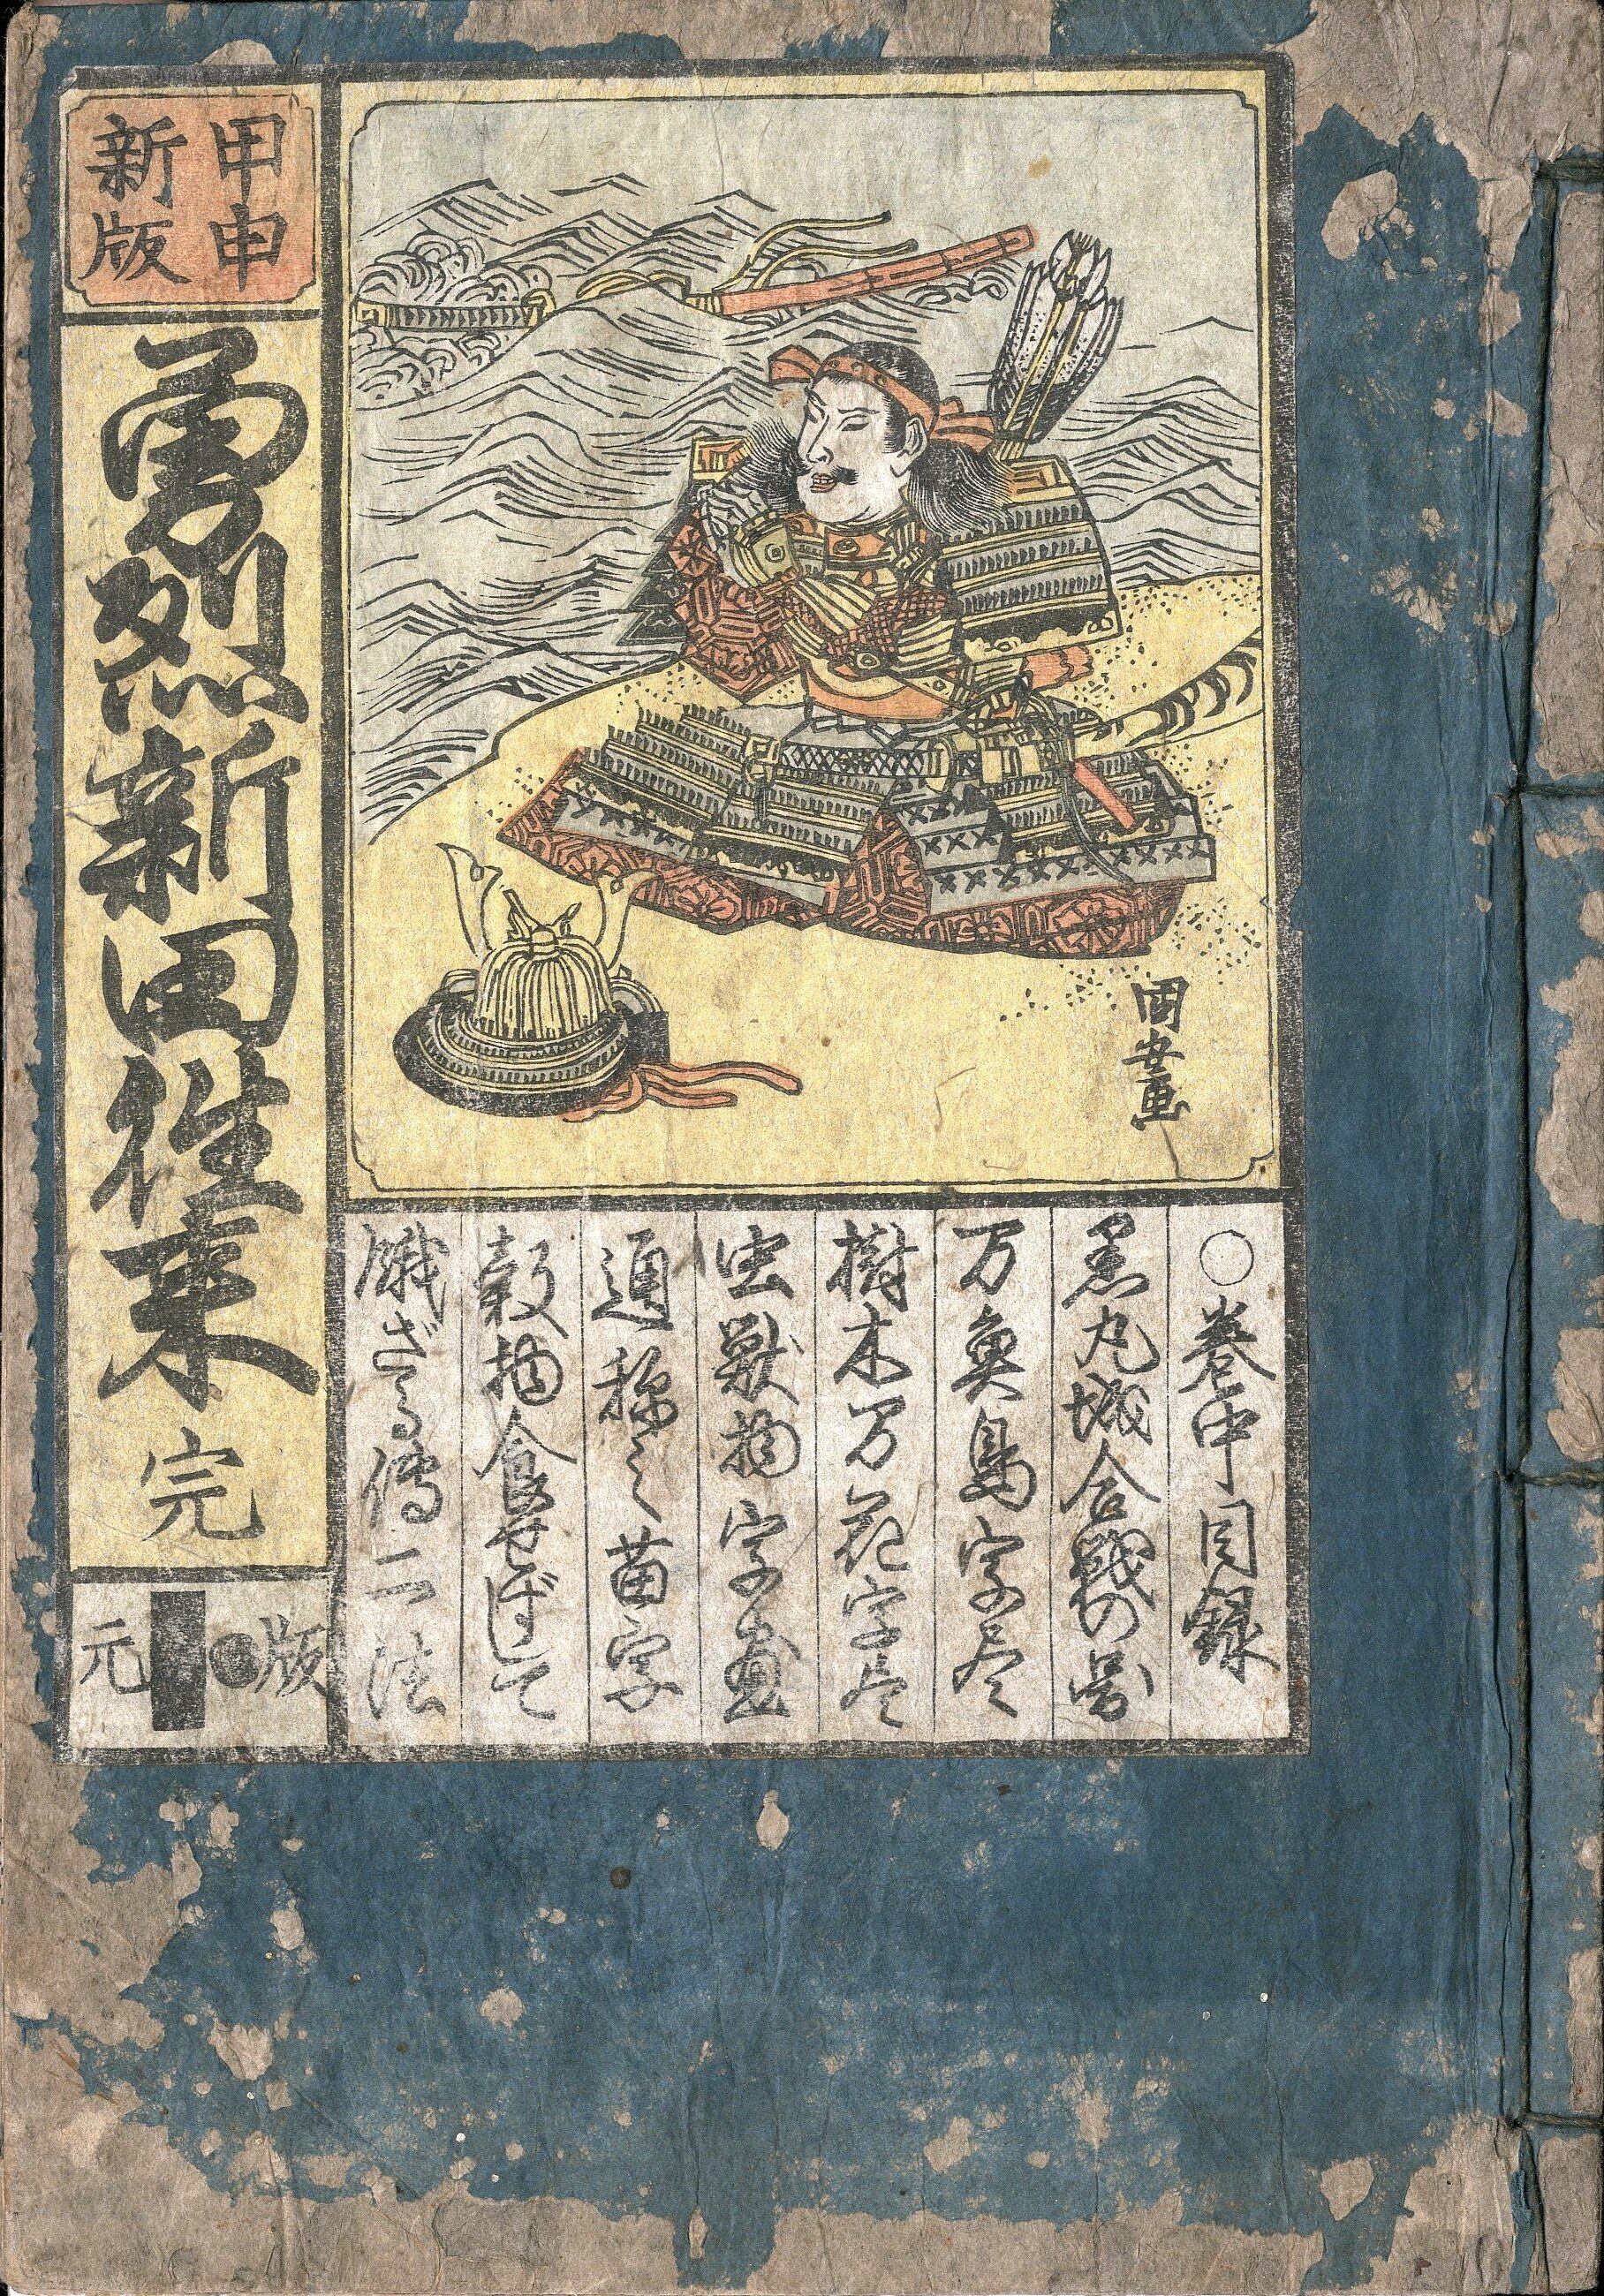 甲申
新版
勇烈新田徃来 完
版
元
國安画
○巻中目録
黒丸城合戦の図
万魚鳥字尽
樹木万花字尽
虫獣物字尽
通称之苗字
穀物食せずして
餓ざる傳二法